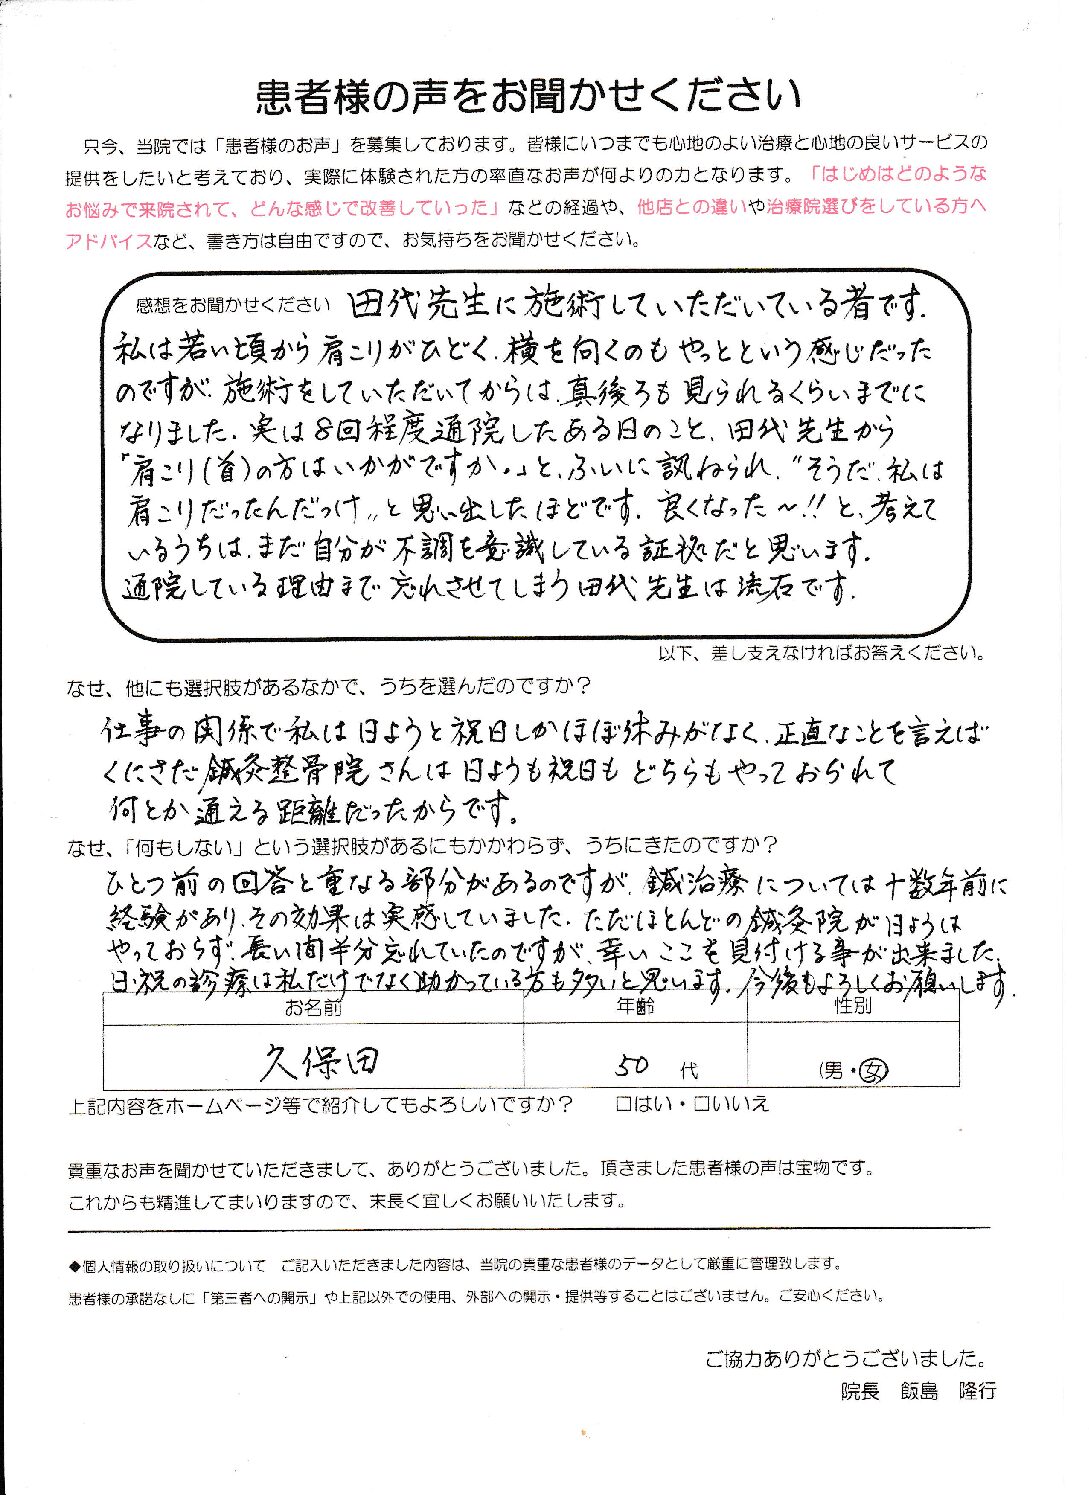 患者様の声をお聞かせください
只今、当院では「患者様のお声」を募集しております。皆様にいつまでも心地のよい治療と心地の良いサービスの
提供をしたいと考えており、実際に体験された方の率直なお声が何よりの力となります。「はじめはどのような
お悩みで来院されて、どんな感じで改善していった」などの経過や、他店との違いや治療院選びをしている方へ
アドバイスなど、書き方は自由ですので、お気持ちをお聞かせください。
感想をお聞かせください 田代先生に施術していただいている者です.
私は若い頃から肩こりがひどく、横を向くのもやっとという感じだった
のですが、施術をしていただいてからは、真後ろも見られるくらいまでに
なりました. 実は8回程度通院したある日のこと、田代先生から
「肩こり(首)の方はいかがですか。」と、ふいに訊ねられ、"そうだ、私は
肩こりだったんだっけ〟と思い出したほどです. 良くなった〜!!と、考えて
いるうちは、まだ自分が不調を意識している証拠だと思います.
通院している理由まで忘れさせてしまう田代先生は流石です.
以下、差し支えなければお答えください。
なぜ、他にも選択肢があるなかで、うちを選んだのですか?
仕事の関係で私は日ようと祝日しかほぼ休みがなく、正直なことを言えば
くにさだ鍼灸整骨院さんは日ようも祝日もどちらもやっておられて
何とか通える距離だったからです。
なぜ、「何もしない」という選択肢があるにもかかわらず、うちにきたのですか?
ひとつ前の回答と重なる部分があるのですが、鍼治療については十数年前に
経験があり、その効果は実感していました. ただほとんどの鍼灸院が日ようは
やっておらず、長い間半分忘れていたのですが、幸いここを見付ける事が出来ました.
日・祝の診療は私だけでなく助かっている方も多いと思います. 今後もよろしくお願いします.
お名前 年齢 性別
久保田 50 代 (男・女)
上記内容をホームページ等で紹介してもよろしいですか? □はい・□いいえ
貴重なお声を聞かせていただきまして、ありがとうございました。頂きました患者様の声は宝物です。
これからも精進してまいりますので、末長く宜しくお願いいたします。
◆個人情報の取り扱いについて ご記入いただきました内容は、当院の貴重な患者様のデータとして厳重に管理致します。
患者様の承諾なしに「第三者への開示」や上記以外での使用、外部への開示・提供等することはございません。ご安心ください。
ご協力ありがとうございました。
院長 飯島 隆行